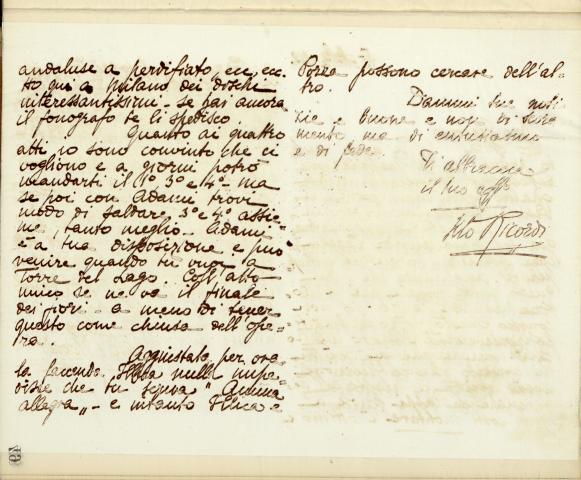 andaluse a perdifiato, ecc. ecc.
Ho qui a Milano dei dischi
interessantissimi - se hai ancora
il fonografo te li spedisco.
Quanto ai quattro
atti io sono convinto che ci
vogliono e a giorni potrò
mandarti il 1º 3º e 4º ma
se poi con Adami trovi
modo di saldare 3º e 4º assie-
me, tanto meglio. Adami
è a tua disposizione e può
venire quando tu vuoi a
Torre del Lago. Coll'atto
unico se ne va il finale
dei fiori - a meno di tener
questo come chiusa dell'ope-
ra.
Aggiustata per ora
la faccenda nulla impe-
disce che tu scriva "Anima
allegra" - e intanto e
possono cercare dell'al-
tro.
Dammi tue noti-
zie e buone e non di
ma di entusiasmo
e di fede.
Ti abbraccia
il tuo aff.
Tito Ricordi
49